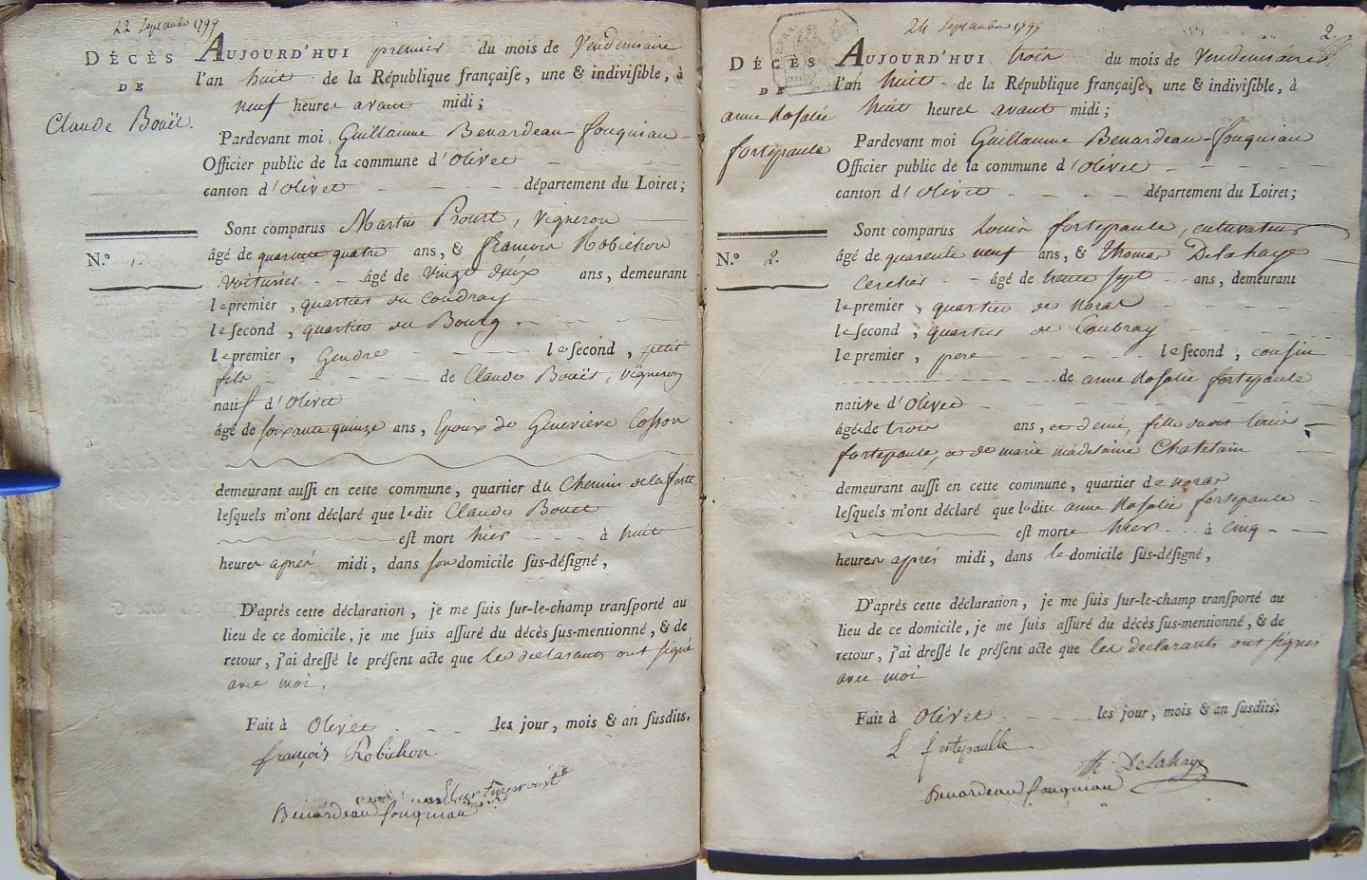 22 Septembre 1799
DÉCÈS
DE
Claude Bouët.
N.º 1.
AUJOURD'HUI premier du mois de Vendemiaire
l'an huit de la République françaiſe, une & indiviſible, à
neuf heures avant midi;
Pardevant moi Guillaume Benardeau-fouqueau
Officier public de la commune d'Olivet
canton d'Olivet département du Loiret;
Sont comparus Martin Proust, Vigneron
âgé de quarante quatre ans, & françois Robichon
Voiturier âgé de Vingt deux ans, demeurant
le premier, quartier du Coudray
le ſecond, quartier du Bourg.
le premier, Gendre le ſecond, petit
fils de Claude Bouët, Vigneron
natif d'Olivet
âgé de ſoixante quinze ans, Epoux de Genevieve Coſson
demeurant auſſi en cette commune, quartier du Chemin de la ferté
leſquels m'ont déclaré que ledit Claude Bouet
eſt mort hier à huit
heures après midi, dans ſon domicile ſus-déſigné,
D'après cette déclaration, je me ſuis ſur-le-champ tranſporté au
lieu de ce domicile, je me ſuis aſſuré du décès ſus-mentionné, & de
retour, j'ai dreſſé le préſent acte que les declarants ont ſigné
avec moi.
Fait à Olivet les jour, mois & an ſuſdits.
françois Robichon
Benardeau fouqueau
24 Septembre 1799
2.
DÉCÈS
DE
anne Roſalie
fortépaule
N.º 2.
AUJOURD'HUI trois du mois de Vendemiaire
l'an huit de la République françaiſe, une & indiviſible, à
huit heures avant midi;
Pardevant moi Guillaume Benardeau-fouqueau
Officier public de la commune d'Olivet
canton d'Olivet département du Loiret;
Sont comparus Louis fortépaule, cultivateur
âgé de quarante neuf ans, & Thomas Delahaye
âgé de trente ſept ans, demeurant
le premier, quartier de
le ſecond, quartier de Coudray
le premier, pere le ſecond, couſin
de anne Roſalie fortépaule
native d'Olivet
âgée de trois ans, et demie, fille dudit Louis
fortépaule, et de marie madelaine Chatelain
demeurant auſſi en cette commune, quartier de
leſquels m'ont déclaré que ladite anne Roſalie fortépaule
eſt morte hier à cinq
heures après midi, dans le domicile ſus-déſigné,
D'après cette déclaration, je me ſuis ſur-le-champ tranſporté au
lieu de ce domicile, je me ſuis aſſuré du décès ſus-mentionné, & de
retour, j'ai dreſſé le préſent acte que les declarants ont ſigné
avec moi
Fait à Olivet les jour, mois & an ſuſdits.
L fortepaulle
th. Delahaye
Benardeau fouqueau